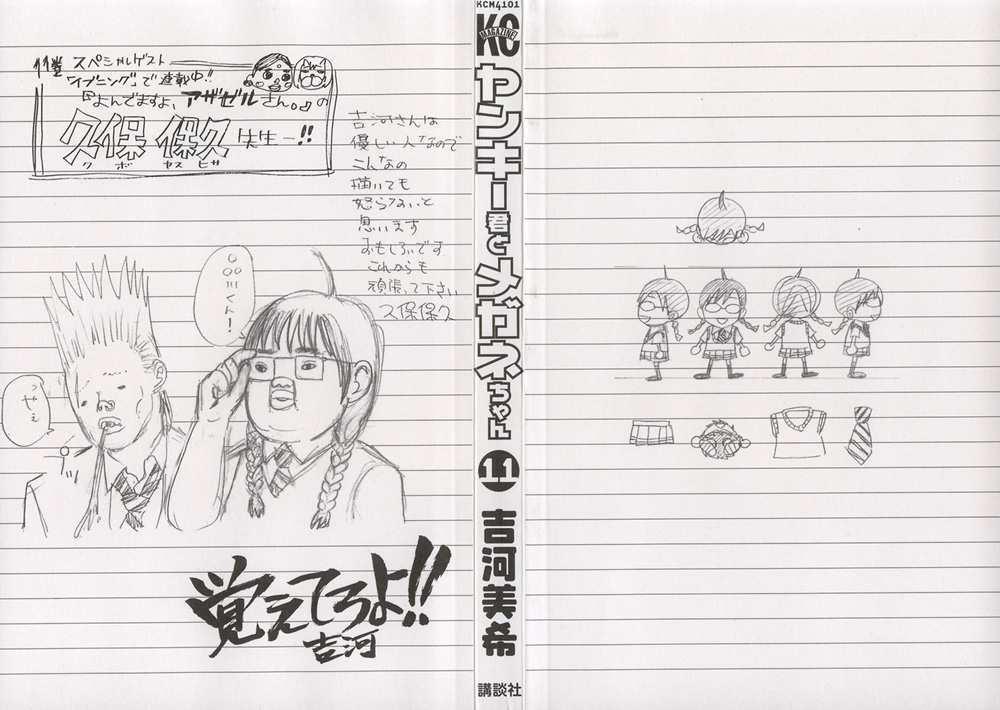 スペシャルゲスト
「イブニング」で連載中!!
『よんでますよ、アザゼルさん。』の
久保 保久 先生ー!!
クボ ヤスヒサ
吉河さんは
優しい人なので
こんなの
描いても
怒らないと
思います
おもしろいです
これからも
頑張って下さい
久保保久
○○川くん!
プッ
覚えてろよ!!
吉河
KCM4101
KC
MAGAZINE
ヤンキー君とメガネちゃん
11
吉河美希
講談社